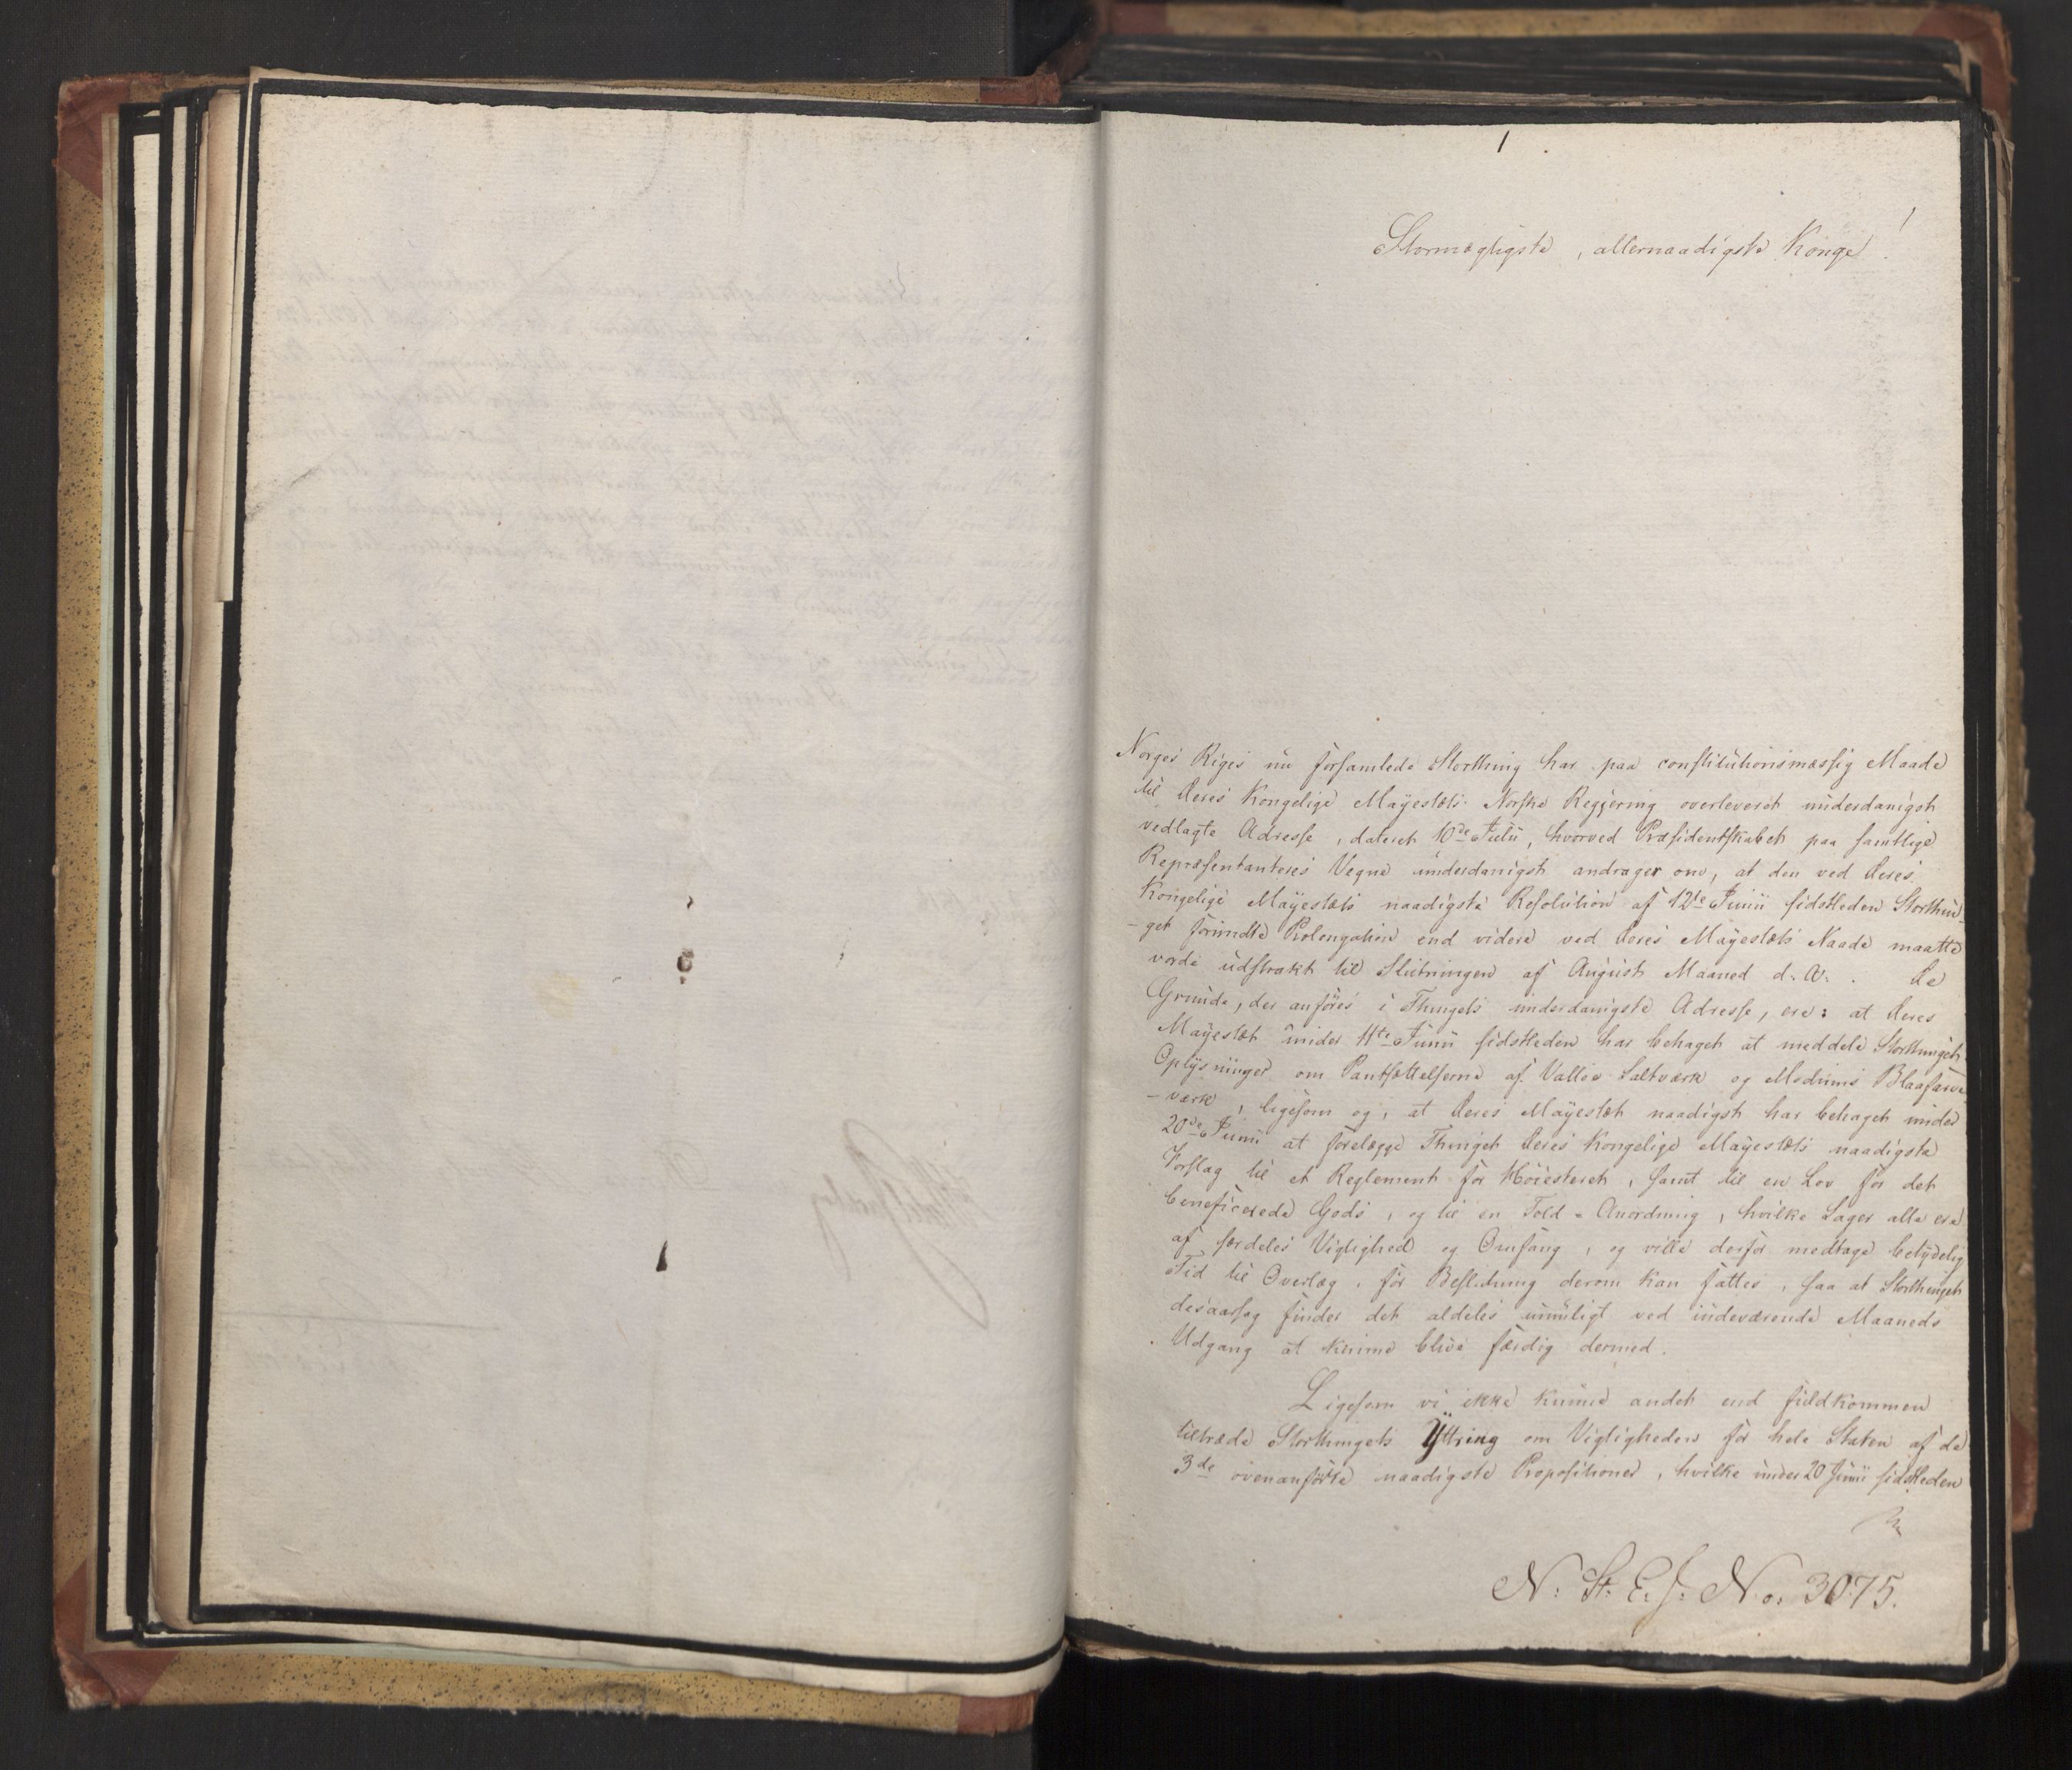 Stormægtigste, allernaadigste Konge!
Norges Riges nu forsamlede Storthing har paa constitutionsmæssig Maade
til Deres Kongelige Mayestæts Norske Regjering overleveret underdanigst
vedlagte Adresse, dateret 10de Julii, hvorved Præsidentskabet paa samtlige
Repræsentanteres Vegne underdanigst andrager om, at den ved Deres
Kongelige Mayestæts naadigste Resolution af 12te Junii sidstleden Storthin-
-get forundte Prolongation end videre ved Deres Mayestæts Naade maatte
vorde udstrakt til Slutningen af August Maaned d: A: . De
Grunde, der anføres i Thingets underdanigste Adresse, ere: at Deres
Mayestæt under 11te Junii sidstleden har behaget at meddele Storthinget
Oplysninger om Pantsættelserne af Valløe Saltværk og Modums Blaafarve-
-værk, ligesom og, at Deres Mayestæt naadigst har behaget under
20de Junii at forelægge Thinget Deres Kongelige Mayestæts naadigste
Forslag til et Reglement for Høiesteret, samt til en Lov for det
beneficerede Gods, og til en Told-Anordning, hvilke Sager alle ere
af særdeles Vigtighed og Omfang, og ville derfor medtage betydelig
Tid til Overlæg, før Beslutning derom kan fattes, saa at Storthinget
desaarsag finder det aldeles umuligt ved indeværende Maaneds
Udgang at kunne blive færdig dermed.
Ligesom vi ikke kunne andet end fuldkommen
tiltræde Storthingets Yttring om Vigtigheden for hele Staten af de
3de ovenanførte naadigste Propositioner, hvilke under 20 Junii sidstleden
N: St. E. J: No: 3075.